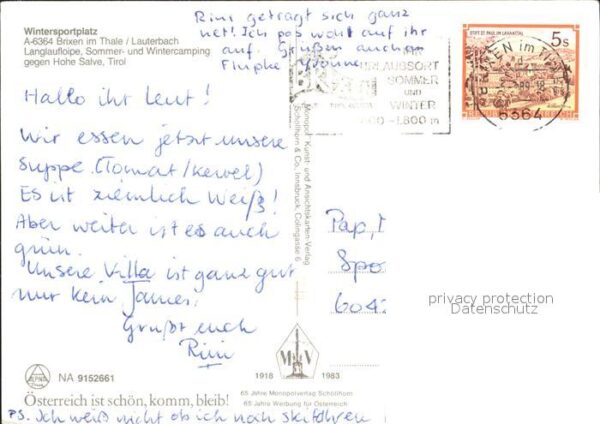 Wintersportplatz
A-6364 Brixen im Thale / Lauterbach
Langlaufloipe, Sommer- und Wintercamping
gegen Hohe Salve, Tirol
Rini geträgt sich ganz
net! Ich pas wohl auf ihr
auf. Grüßen auch an
Flupke Yvonne
Hallo ihr Leut!
Wir essen jetzt unsere
Suppe. (Tomat/Kervel)
Es ist ziemlich Weiß!
Aber weiter ist es auch
grün.
Unsere Villa ist ganz gut
nur kein James.
Grüßt euch
Rini
NA 9152661
Österreich ist schön, komm, bleib!
PS. Ich weiß nicht ob ich noch skifahren
Monopol Kunst- und Ansichtskarten-Verlag
Schöllhorn & Co., Innsbruck, Colingasse 6
1918 M V 1983
65 Jahre Monopolverlag Schöllhorn
65 Jahre Werbung für Österreich
URLAUBSORT
SOMMER
UND
WINTER
800 - 1.800 m
BRIXEN im THALE
6364
STIFT ST. PAUL IM LAVANTTAL
5s
REPUBLIK ÖSTERREICH
Pap,
Spo
604
privacy protection
Datenschutz